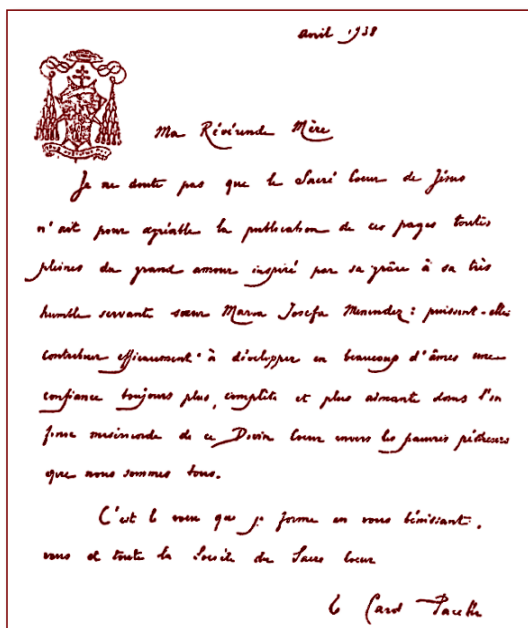 avril 1938
Ma Révérende Mère
Je ne doute pas que le Sacré Coeur de Jésus
n'ait pour agréable la publication de ces pages toutes
pleines du grand amour inspiré par sa grâce à sa très
humble servante sœur Maria Josefa Menendez : puissent-elles
contribuer efficacement à développer en beaucoup d'âmes une
confiance toujours plus complète et plus aimante dans l'in
finie miséricorde de ce Divin Coeur envers les pauvres pécheurs
que nous sommes tous.
C'est le voeu que je forme en vous bénissant,
vous et toute la Société du Sacré Coeur
Card Pacelli